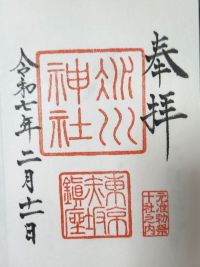 奉拝
氷川神社
准勅祭十社之内
東京赤坂鎮座
令和七年二月十一日